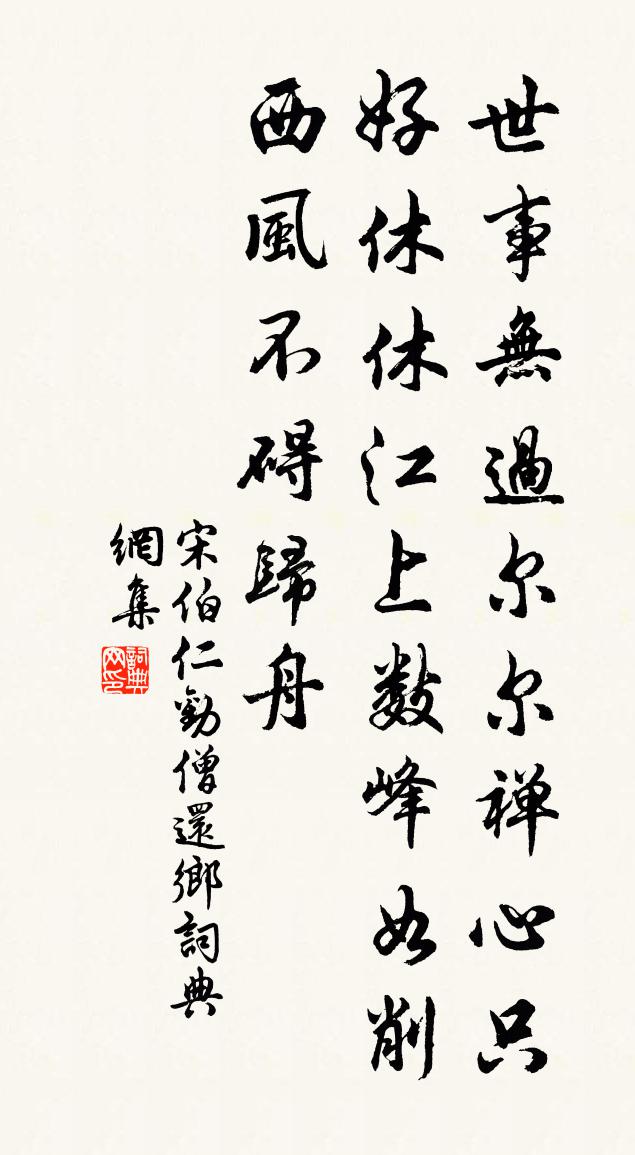 世事無過尔尔禅心只
好休休江上数峰如削
西風不碍歸舟
宋伯仁勸僧還鄉詞典
網集
詞典
网印